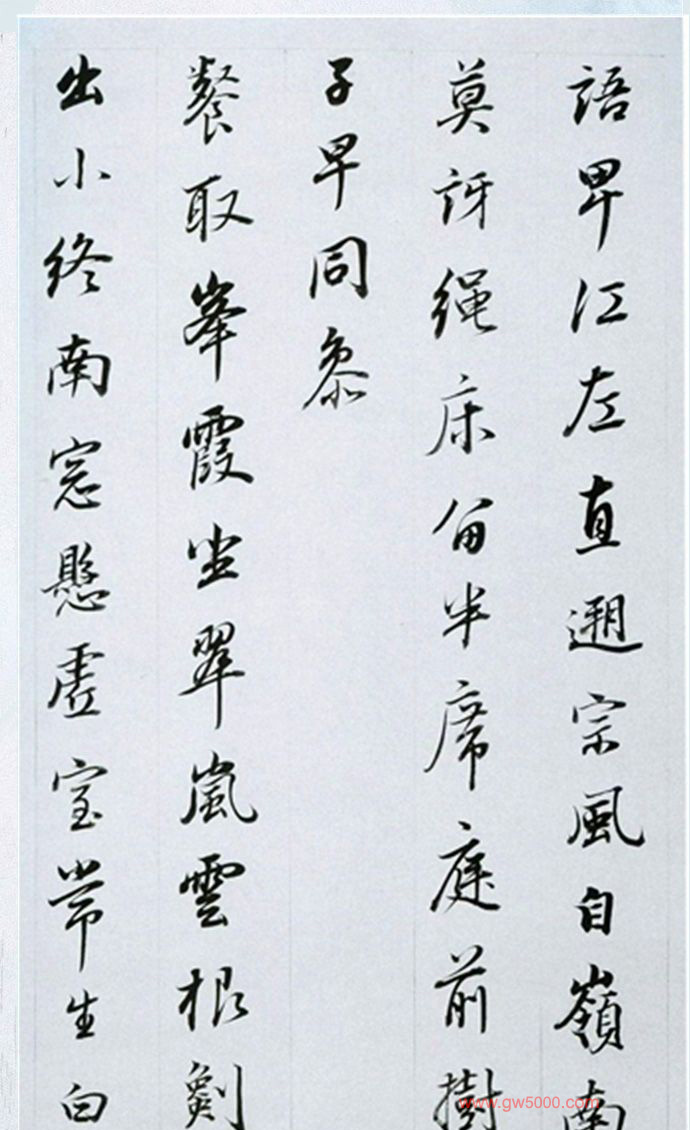 語畀江左直遡宗風自嶺南
莫訝绳床分半席庭前樹
子早同叅
餐取峯霞坐翠嵐雲根劖
出小終南窓懸虚室常生白
www.gw5000.com